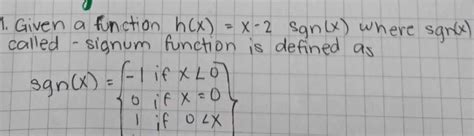 1. Given a function h(x) = x-2 sgn(x) where sgn(x)
called - signum function is defined as
sgn(x) = { -1 if x < 0
0 if x = 0
1 if 0 < x }